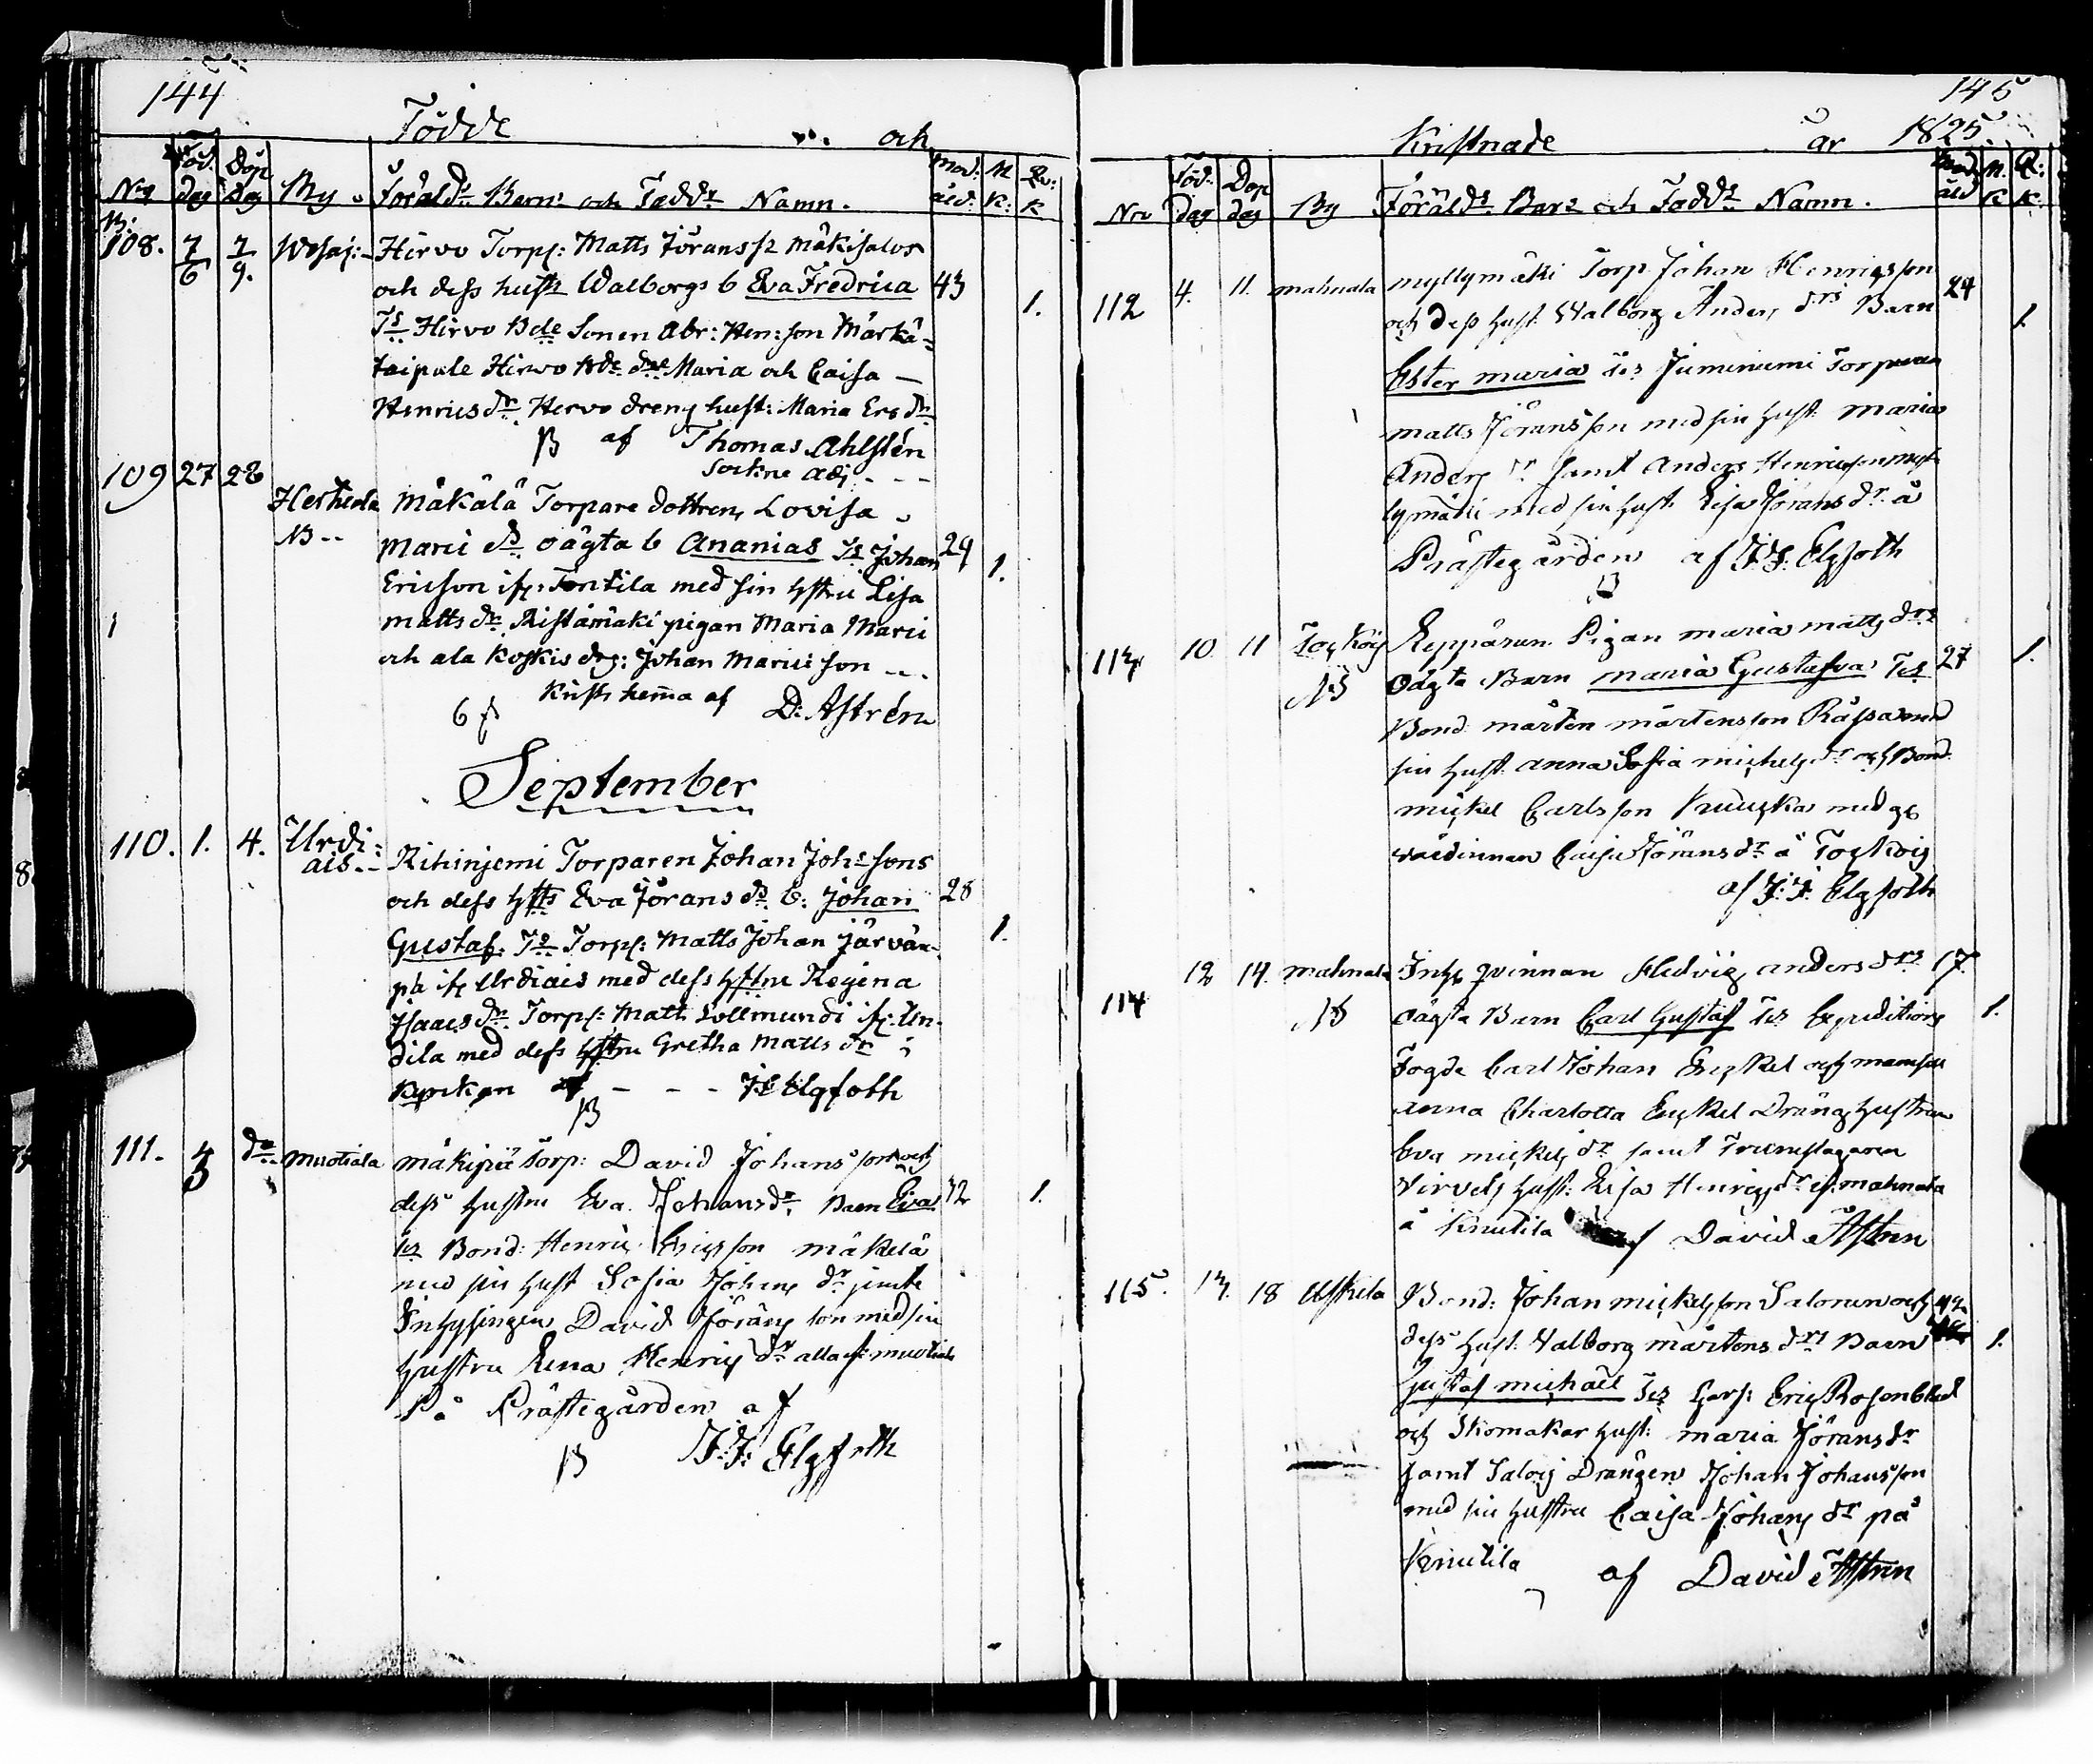 144
Födde och
N:o Föd. dag Döp dag By Föräld:s Barns och Fadd:s Namn. Mod: åld: M K: Qv: K
108. 7/6 7/9. Wesaj:- Hirvo Torp: Matts Jöranss: Mäkisalos
och dess hust: Walborgs b Eva Fredrica 43 1.
Ts Hirvo Bde Sonen Abr: Hen:son Märkä-
taipale Hirvo Bde dr Maria och Caisa —
Henricsdr. Hervo dreng hust: Maria Ers dr
af Thomas Ahlstén
Sockne Adj. - -
109 27 28
Heikkila Mäkälä Torpare dottren, Lovisa
NB -- Marci dr. oägta b Ananias Ts Johan 29 1.
Ericson if: Tontila med sin hstru Lisa
matts dr. Ristamäki pigan Maria Marci
och ala Koskis drg: Johan Marici son
krists hema af D: Astrén
September
110. 1. 4. Urdi-
ais-- Rihinjemi Torparen Johan Johs sons
och dess hsts Eva Jörans dr. b: Johan 28
Gustaf. Ts Torp: Matts Johan Järvän- 1.
pä if Urdiais med dess hstru Regina
Isaacs dr. Torp: Matts Sollmundi if: Un-
dila med dess hstru Gretha Matts dr i
Kyrkan af - - - Elgfoth
111. 4/3 do muotiala mäkipiä Torp: David Johansson och
dess hustru Eva Johansdr. Barn Eva 32 1.
Ts Bond: Henric Ericsson mäkelä
med sin hust Sofia Johans dr jemte
Inhysingen David Jörans son med sin
hustru Lena Henrics dr alla if muotiala
På Prästegården af
J:F: Elgfoth
145
Kristnade år 1825.
No Föd: dag Dop dag By Föräld:s Bars och Fadd:s Namn. Mod: åld M. K Q: K:
112 4. 11. mahnala myllymäki Torp Johan Henricsson 24
och dess hust. Walborg Anders drs Barn 1
Ester maria Ts Juminiemi Torparen
matts Jöransson med sin hust. maria
Anders dr samt Anders Henricsson myl-
lymäki med sin hust. Lisa Jörans dr. å
Prästegården af J.F. Elgfoth
113 10. 11 Toikoij Reppärän Pigan maria matts drs
NB Oägta Barn maria Gustafva Ts 27 1.
Bond mårten mårtensson Rässa med
sin hust. anna Sofia michels dr och Bond
mickel Carlsson med gs
värdinnan Caisa Jörans dr å Toikoij
af J:F. Elgfoth
114 12 14. mahnala Inhs qvinnan Hedvig anders drs 17.
NB oägta Barn Carl Gustaf Ts Expeditions 1.
Fogde Carl Johan Enckel och mamsell
anna Charlotta Enckel Drängs hustrun
Eva mickels dr samt Trumslagaren
Virvels hust: Lisa Henrics dr if. mahnala
å Knutila af David Astren
115. 13. 18 Uskila Bond: Johan mickelsson Salonen och 42
dess hust. Valborg mårtens drs Barn 1.
Gustaf michaël Ts Garf: Eric Rosenblad
och Skomakar hust: maria Jörans dr
samt Saloij Drängen Johan Johansson
med sin hustru Caisa Johans dr på
Knutila af David Astren